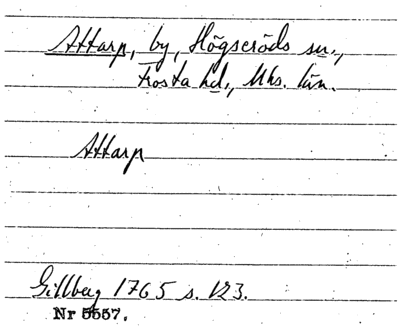 Attarp, by, Högseröds sn.,
Frosta hd., Mhs. län.
Attarp
Gillberg 1765 s. 123.
Nr 5557.